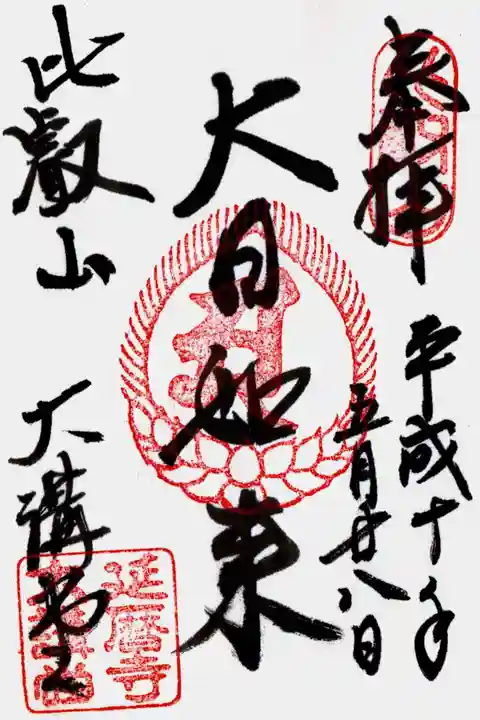 奉拝
平成十年
五月廿八日
大日如来
比叡山
大講堂
延暦寺